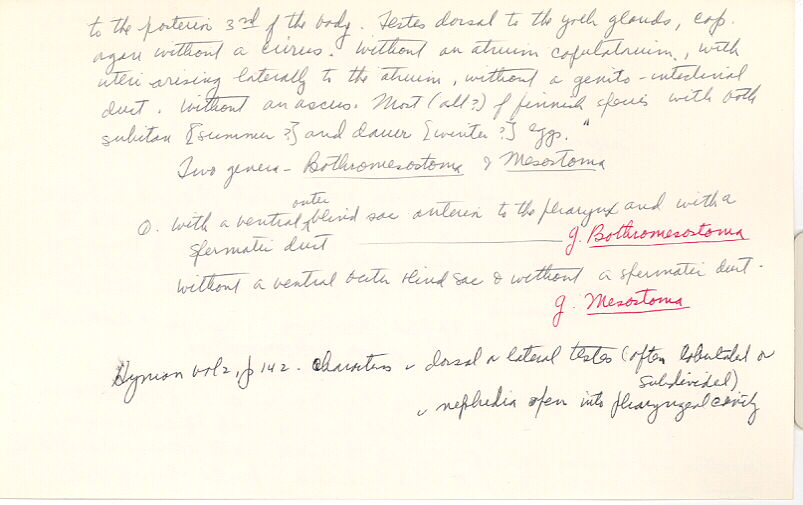 to the posterior 3rd of the body. Testes dorsal to the yolk glands, cop.
organ without a cirrus. Without an atrium copulatorium, with
uteri arising laterally to the atrium, without a genito-intestinal
duct. Without an ascus. Most (all?) of finnish species with both
subitan [summer?] and dauer [winter?] eggs."
Two genera - Bothromesostoma & Mesostoma
a. With a ventral outer blind sac anterior to the pharynx and with a
spermatic duct g. Bothromesostoma
Without a ventral outer blind sac & without a spermatic duct.
g. Mesostoma
Hyman vol 2, p 142. Characters dorsal or lateral testes (often lobulated or
subdivided)
nephredia open into pharyngeal cavity